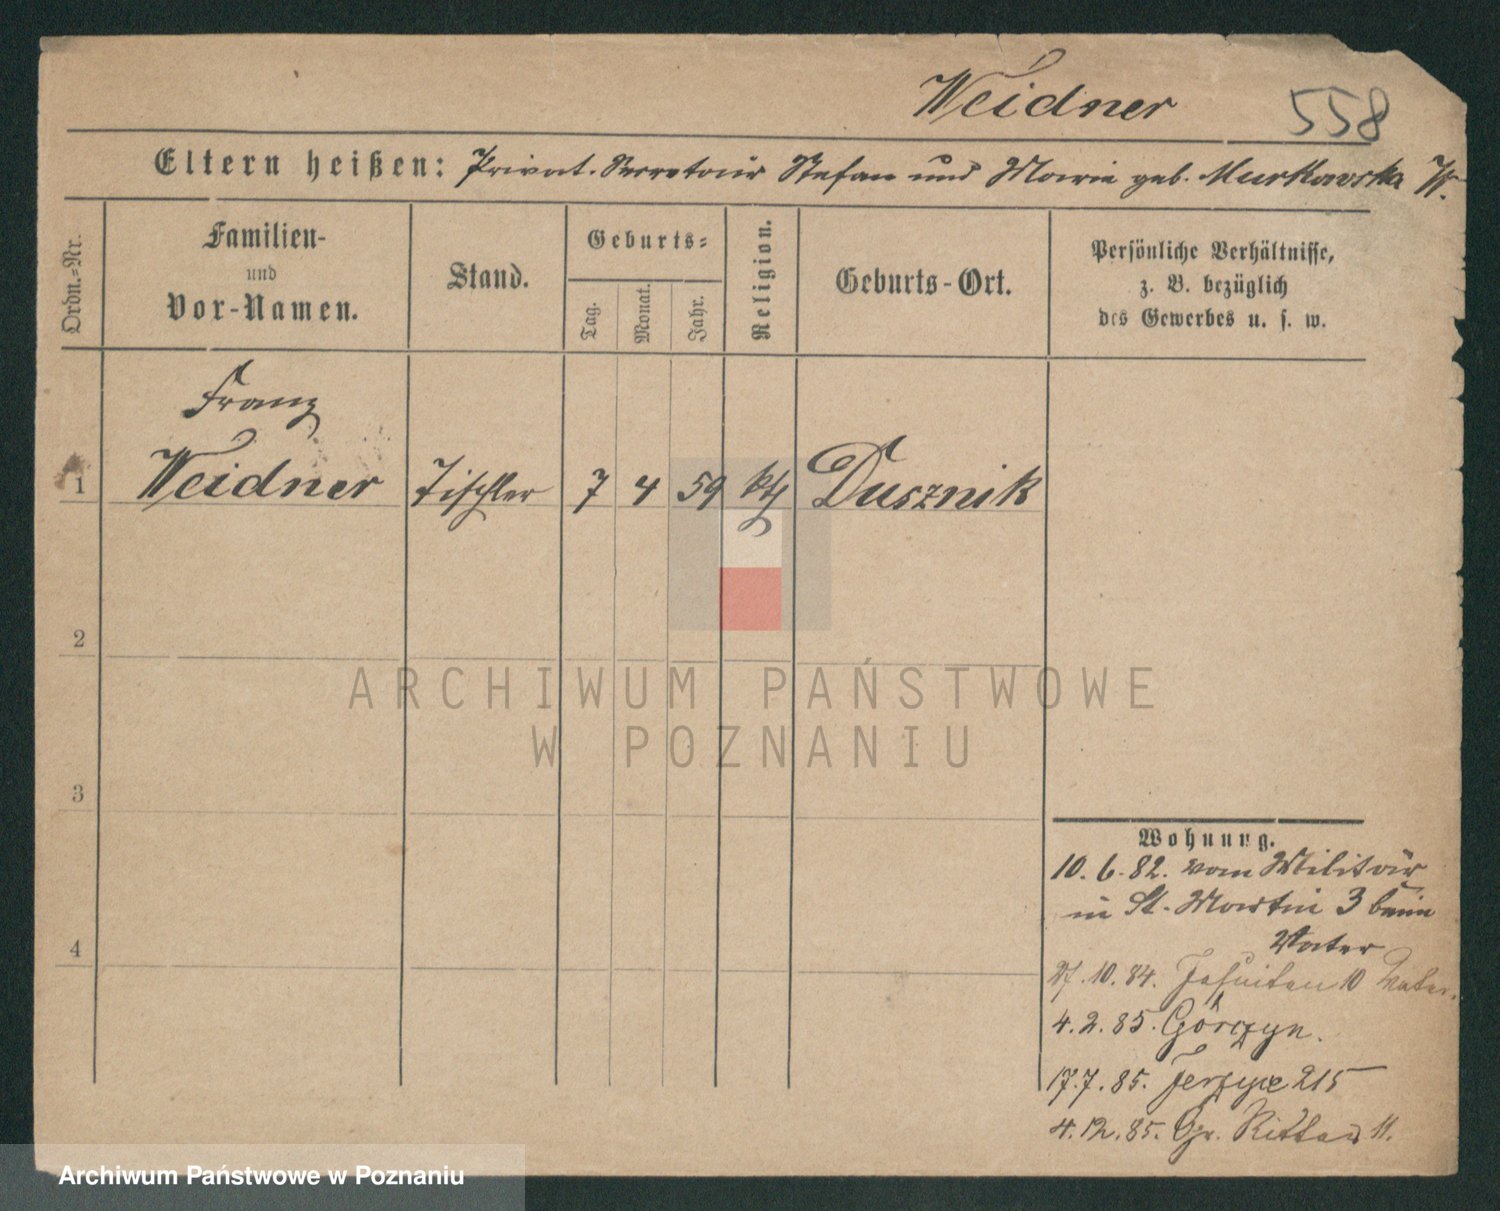 Weidner 558
Eltern heißen: Privat-Secretair Stefan und Marie geb. Murkowska W.
Ordn.=Nr.
Familien-
und
Vor-Namen.
Stand.
Geburts=
Tag.
Monat.
Jahr.
Religion.
Geburts-Ort.
Persönliche Verhältnisse,
z. B. bezüglich
des Gewerbes u. s. w.
Franz
1 Weidner Tischler 7 4 59 kth Dusznik
2
ARCHIWUM PAŃSTWOWE
W POZNANIU
3
Wohnung.
10.6.82. vom Militär
in St. Martin 3 beim
Vater
4
27.10.84. Jesuiten 10 Vater.
4.2.85. Górczyn.
17.7.85. Jerzyce 215
4.12.85. Gr. Ritter 11.
Archiwum Państwowe w Poznaniu